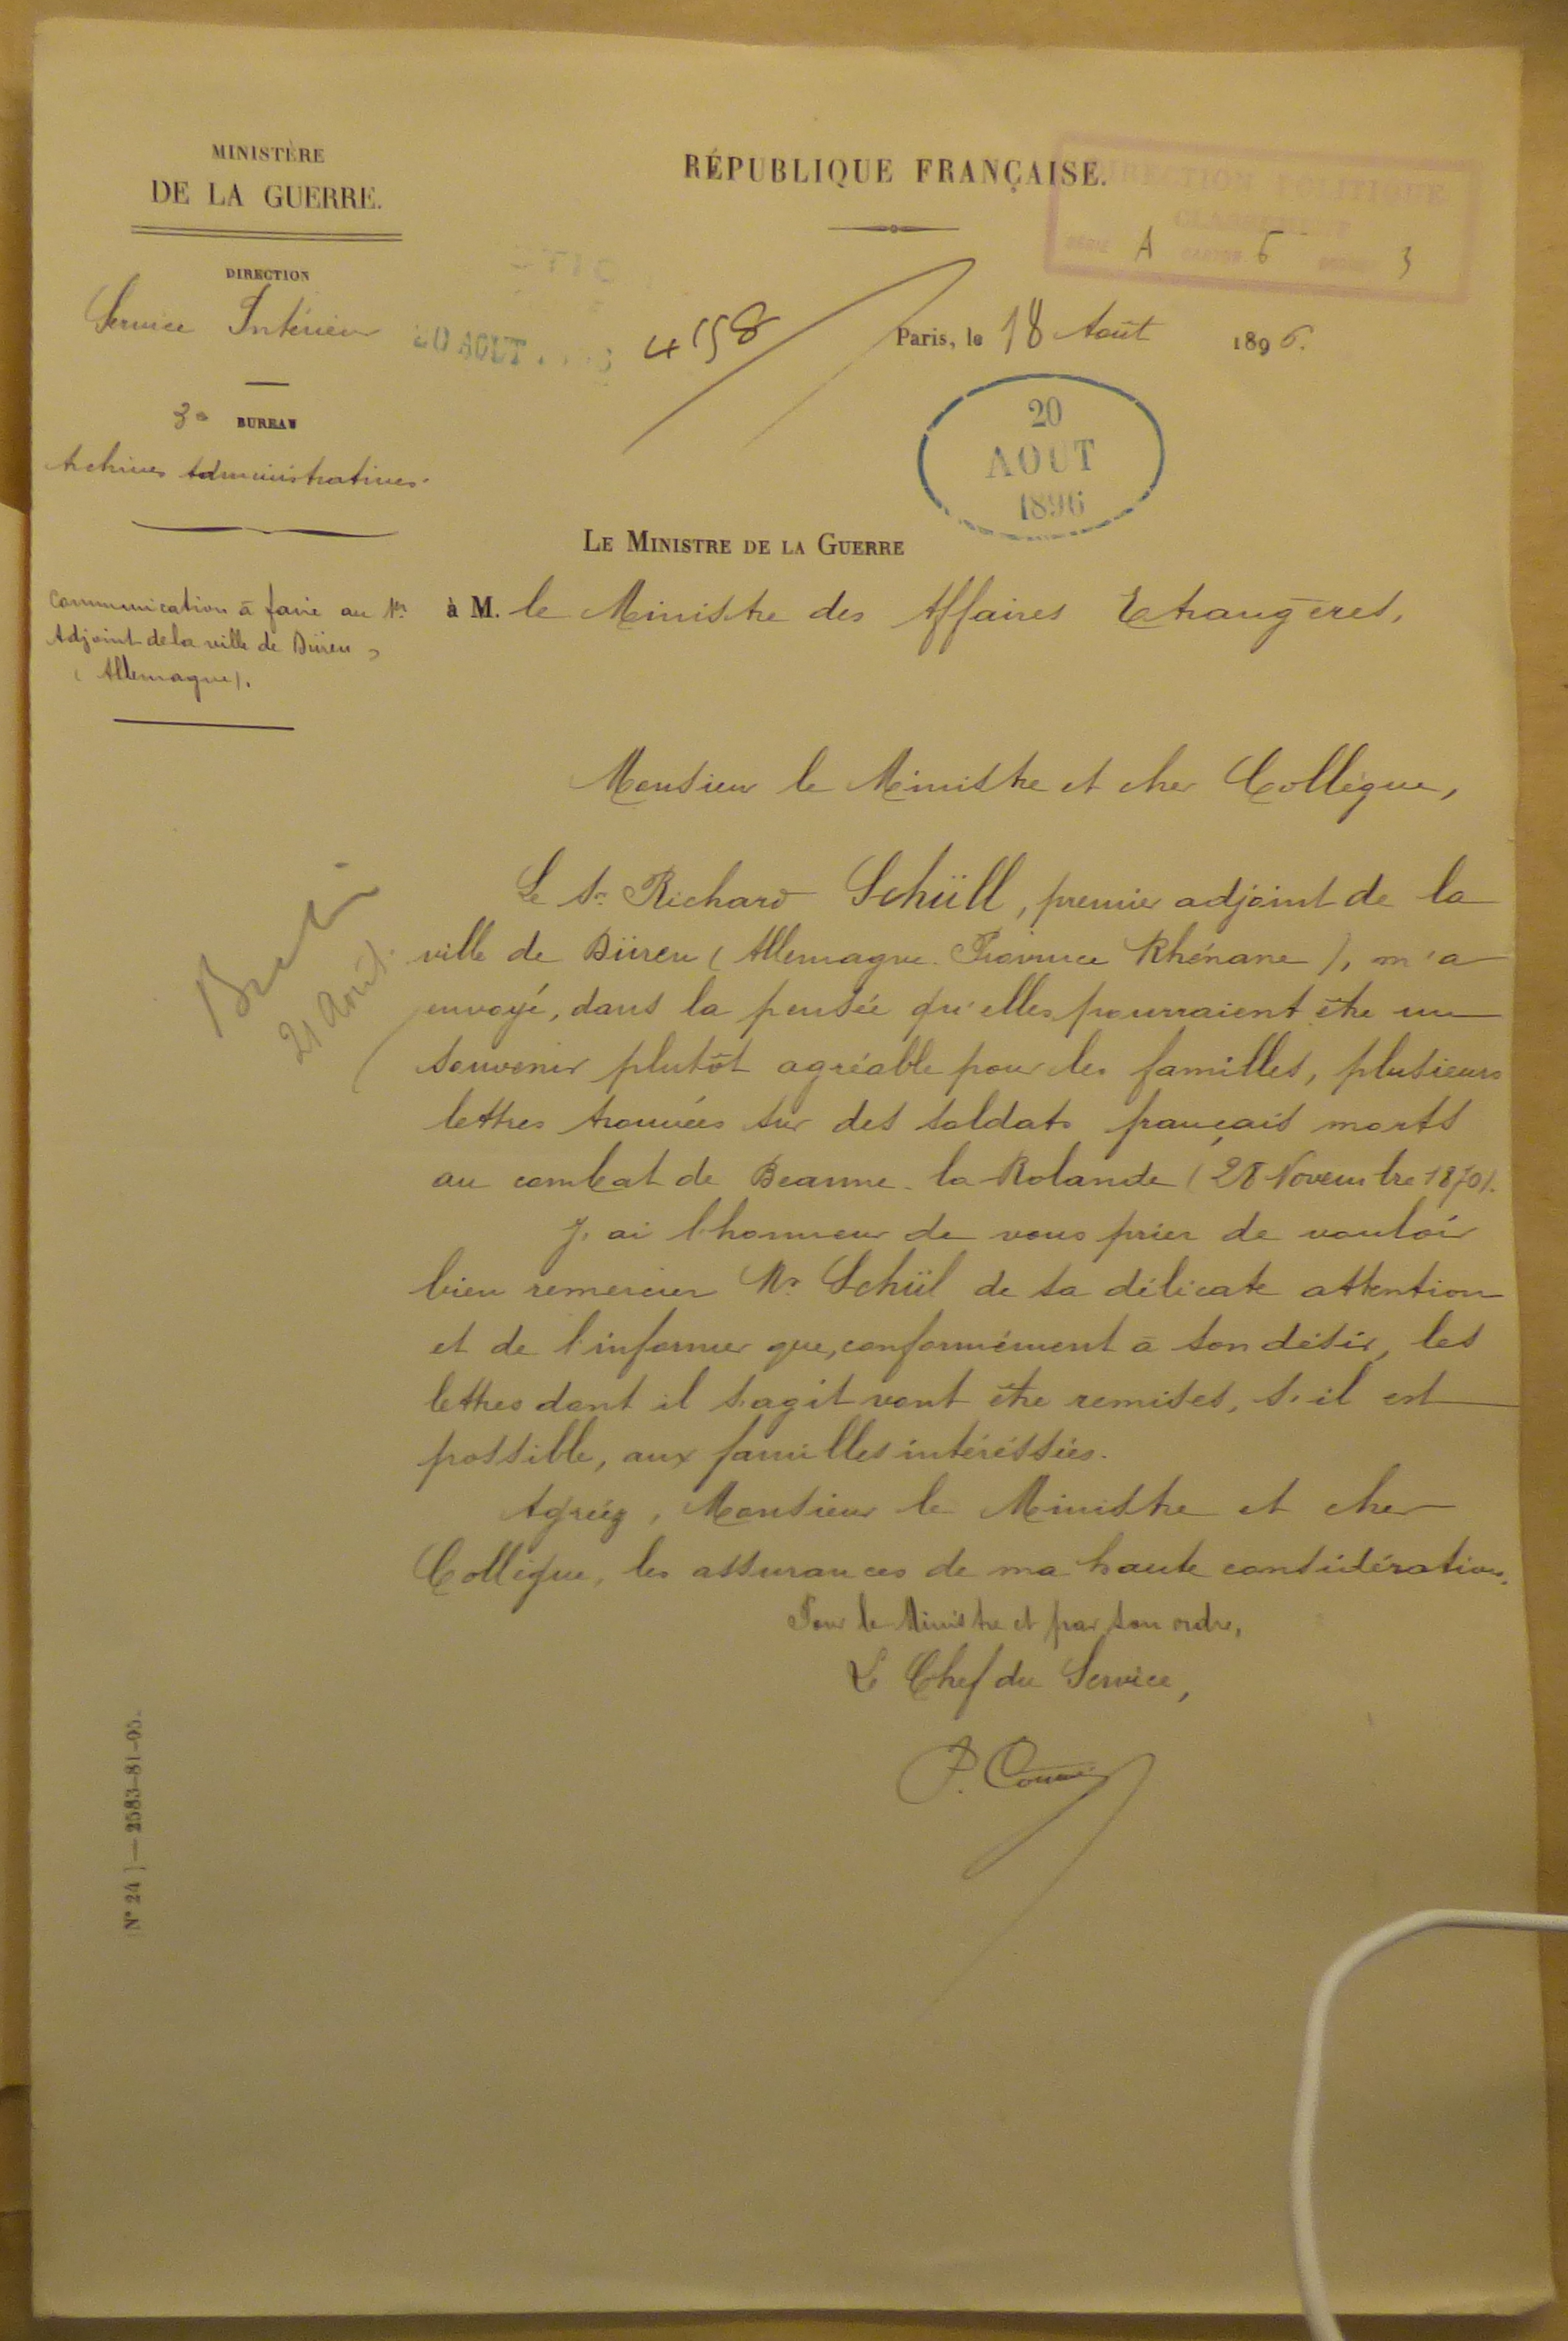 MINISTÈRE
DE LA GUERRE.
DIRECTION
Service Intérieur
3e BUREAU
Archives Administratives.
Communication à faire au 1er
Adjoint de la ville de Düren
(Allemagne).
RÉPUBLIQUE FRANÇAISE.
DIRECTION POLITIQUE
CLASSEMENT
SÉRIE A CARTON 6 DOSSIER 3
20 AOUT
458
Paris, le 18 Août 1896.
20
AOUT
1896
LE MINISTRE DE LA GUERRE
à M. le Ministre des Affaires Etrangères,
Monsieur le Ministre et cher Collègue,
Le Sr. Richard Schüll, premier adjoint de la
ville de Düren (Allemagne. Province Rhénane), m'a
envoyé, dans la pensée qu'elles pourraient être un
souvenir plutôt agréable pour les familles, plusieurs
lettres trouvées sur des soldats français morts
au combat de Beaune-la-Rolande (28 Novembre 1870).
J'ai l'honneur de vous prier de vouloir
bien remercier Mr Schül de sa délicate attention
et de l'informer que, conformément à son désir, les
lettres dont il s'agit vont être remises, s'il est
possible, aux familles intéréssées.
Agréez, Monsieur le Ministre et cher
Collègue, les assurances de ma haute considération.
Pour le Ministre et par son ordre,
Le Chef du Service,
21 Août.
N° 24 — 2583-81-95.